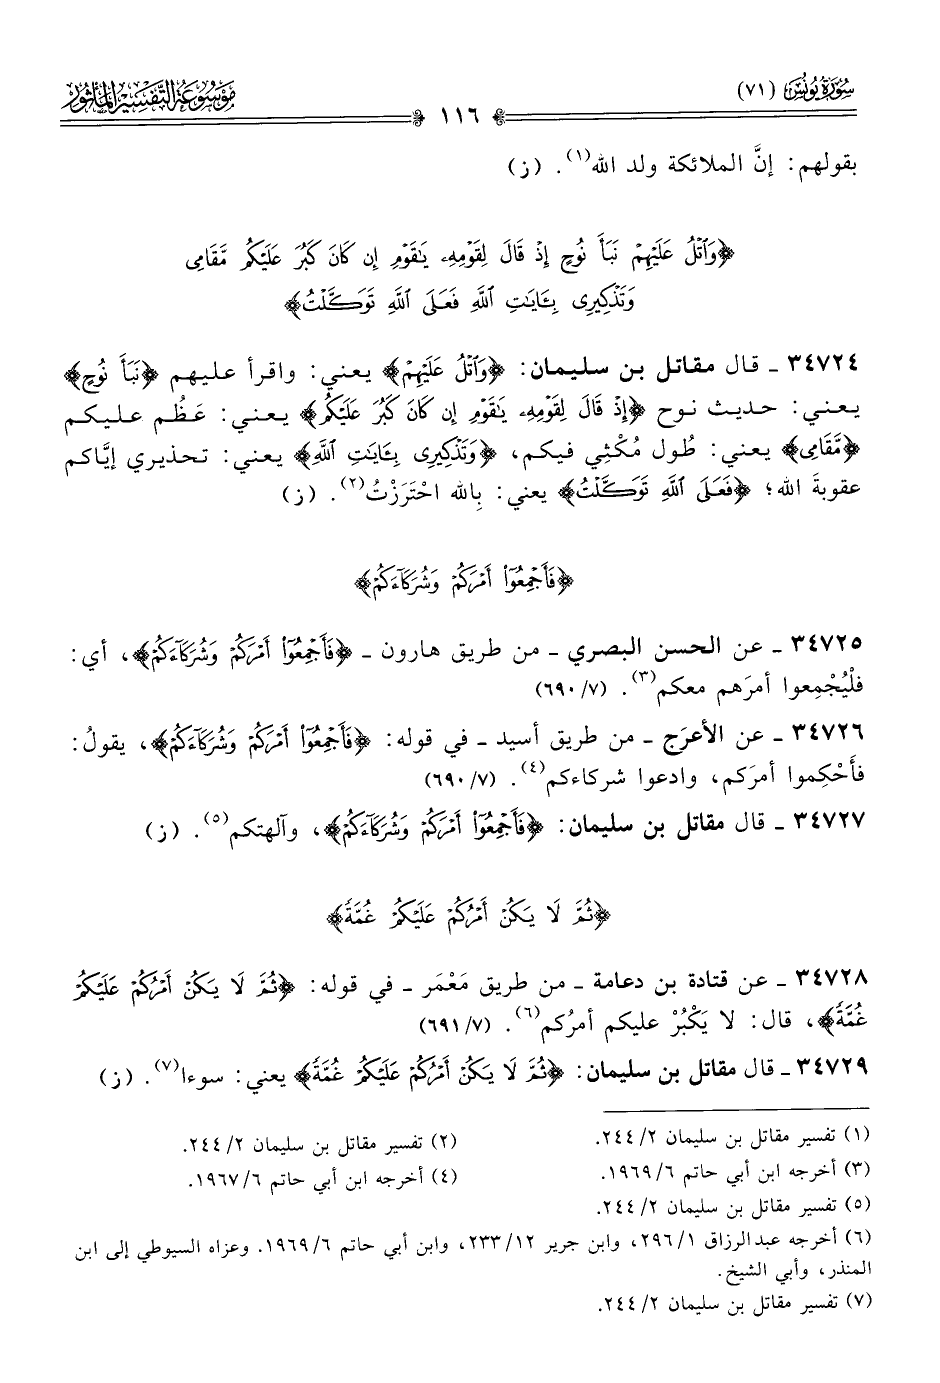 سورة يونس (٧١)
١١٦
موسوعة التفسير المأثور
بقولهم: إنَّ الملائكة ولد الله(١). (ز)
﴿وَٱتْلُ عَلَيْهِمْ نَبَأَ نُوحٍ إِذْ قَالَ لِقَوْمِهِۦ يَٰقَوْمِ إِن كَانَ كَبُرَ عَلَيْكُم مَّقَامِى
وَتَذْكِيرِى بِـَٔايَٰتِ ٱللَّهِ فَعَلَى ٱللَّهِ تَوَكَّلْتُ﴾
٣٤٧٢٤ ـ قال مقاتل بن سليمان: ﴿وَٱتْلُ عَلَيْهِمْ﴾ يعني: واقرأ عليهم ﴿نَبَأَ نُوحٍ﴾
يعني: حديث نوح ﴿إِذْ قَالَ لِقَوْمِهِۦ يَٰقَوْمِ إِن كَانَ كَبُرَ عَلَيْكُم﴾ يعني: عَظُم عليكم
﴿مَّقَامِى﴾ يعني: طُول مُكْثِي فيكم، ﴿وَتَذْكِيرِى بِـَٔايَٰتِ ٱللَّهِ﴾ يعني: تحذيري إيَّاكم
عقوبةَ الله؛ ﴿فَعَلَى ٱللَّهِ تَوَكَّلْتُ﴾ يعني: بِالله احْتَرَزْتُ(٢). (ز)
﴿فَأَجْمِعُوٓا۟ أَمْرَكُمْ وَشُرَكَآءَكُمْ﴾
٣٤٧٢٥ ـ عن الحسن البصري ـ من طريق هارون ـ ﴿فَأَجْمِعُوٓا۟ أَمْرَكُمْ وَشُرَكَآءَكُمْ﴾، أي:
فلْيُجْمِعوا أمرَهم معكم(٣). (٧/ ٦٩٠)
٣٤٧٢٦ ـ عن الأعرَج ـ من طريق أسيد ـ في قوله: ﴿فَأَجْمِعُوٓا۟ أَمْرَكُمْ وَشُرَكَآءَكُمْ﴾، يقولُ:
فأَحْكِموا أمرَكم، وادعوا شركاءكم(٤). (٧/ ٦٩٠)
٣٤٧٢٧ ـ قال مقاتل بن سليمان: ﴿فَأَجْمِعُوٓا۟ أَمْرَكُمْ وَشُرَكَآءَكُمْ﴾، وآلهتكم(٥). (ز)
﴿ثُمَّ لَا يَكُنْ أَمْرُكُمْ عَلَيْكُمْ غُمَّةً﴾
٣٤٧٢٨ ـ عن قتادة بن دعامة ـ من طريق مَعْمَر ـ في قوله: ﴿ثُمَّ لَا يَكُنْ أَمْرُكُمْ عَلَيْكُمْ
غُمَّةً﴾، قال: لا يَكْبُرْ عليكم أمرُكم(٦). (٧/ ٦٩١)
٣٤٧٢٩ ـ قال مقاتل بن سليمان: ﴿ثُمَّ لَا يَكُنْ أَمْرُكُمْ عَلَيْكُمْ غُمَّةً﴾ يعني: سوءا(٧). (ز)
(١) تفسير مقاتل بن سليمان ٢/ ٢٤٤.
(٢) تفسير مقاتل بن سليمان ٢/ ٢٤٤.
(٣) أخرجه ابن أبي حاتم ٦/ ١٩٦٩.
(٤) أخرجه ابن أبي حاتم ٦/ ١٩٦٧.
(٥) تفسير مقاتل بن سليمان ٢/ ٢٤٤.
(٦) أخرجه عبدالرزاق ١/ ٢٩٦، وابن جرير ١٢/ ٢٣٣، وابن أبي حاتم ٦/ ١٩٦٩. وعزاه السيوطي إلى ابن
المنذر، وأبي الشيخ.
(٧) تفسير مقاتل بن سليمان ٢/ ٢٤٤.